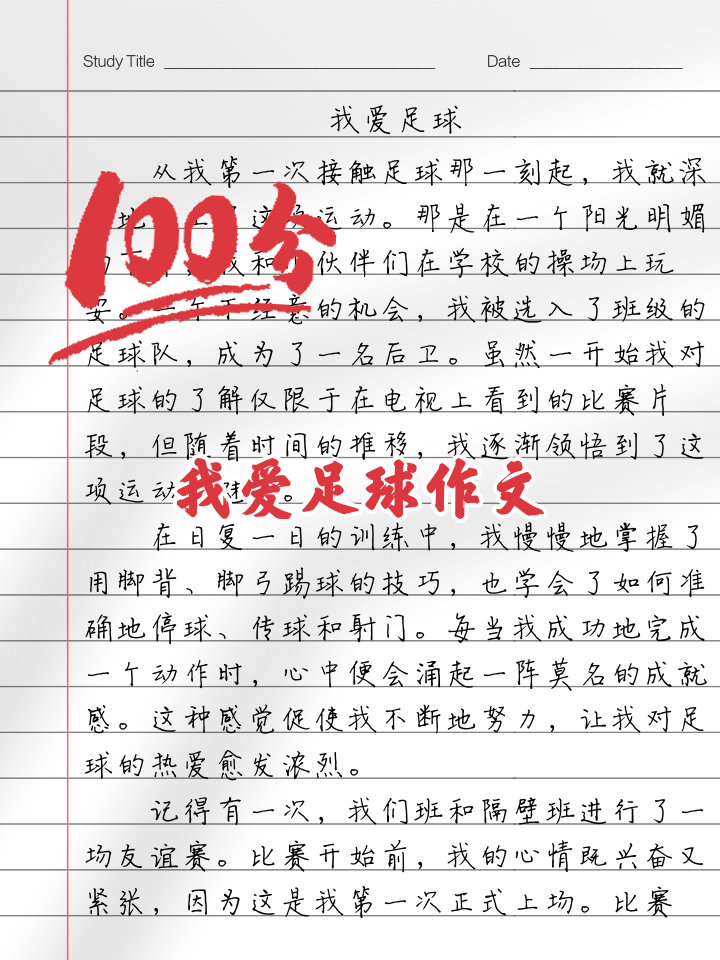 Study Title
Date
我爱足球
从我第一次接触足球那一刻起，我就深
地 上 这 运动。那是在一个阳光明媚
100分
我和 伙伴们在学校的操场上玩
经意的机会，我被选入了班级的
足球队，成为了一名后卫。虽然一开始我对
足球的了解仅限于在电视上看到的比赛片
段，但随着时间的推移，我逐渐领悟到了这
项运动 。
我爱足球作文
在日复一日的训练中，我慢慢地掌握了
用脚背、脚弓踢球的技巧，也学会了如何准
确地停球、传球和射门。每当我成功地完成
一个动作时，心中便会涌起一阵莫名的成就
感。这种感觉促使我不断地努力，让我对足
球的热爱愈发浓烈。
记得有一次，我们班和隔壁班进行了一
场友谊赛。比赛开始前，我的心情既兴奋又
紧张，因为这是我第一次正式上场。比赛